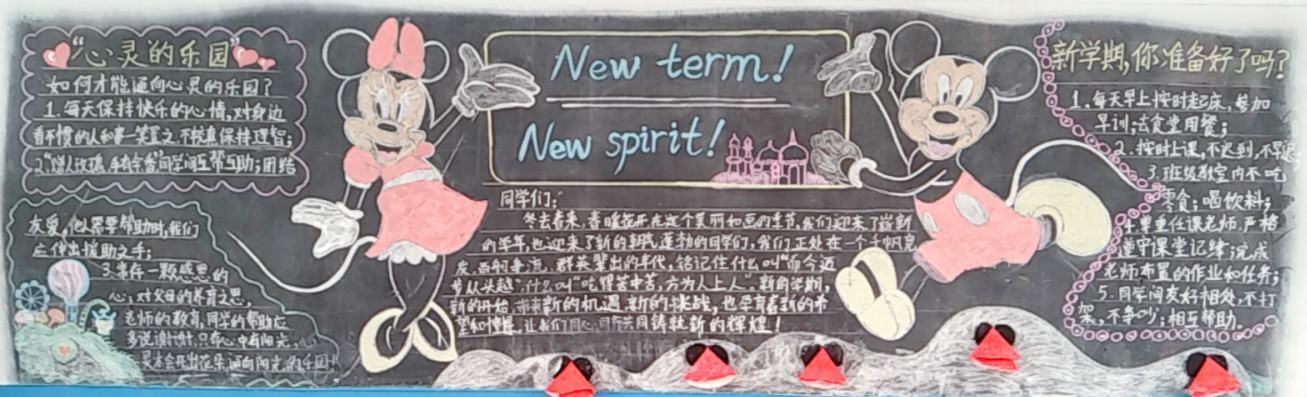 "心灵的乐园"
如何才能通向心灵的乐园?
1.每天保持快乐的心情,对身边
看不惯的人和事一笑置之,不较真保持理智;
2."赠人玫瑰,手有余香"同学间互帮互助;团结
友爱,他人需要帮助时,我们
应伸出援助之手;
3.常存一颗感恩的
心,对父母的养育之恩,
老师的教育,同学的帮助应
多说谢谢,只有心中有阳光,
灵才会开出花朵,通向阳光的乐园!
New term!
New spirit!
同学们:
冬去春来,春暖花开在这个美丽如画的季节,我们迎来了崭新
的学年,也迎来了新的朝气蓬勃的同学们,我们正处在一个千帆竞
发、百舸争流、群英辈出的年代,铭记住什么叫"而今迈
步从头越",什么叫"吃得苦中苦,方为人上人",新的学期,
新的开始,带来新的机遇,新的挑战,也孕育着新的希
望和憧憬,让我们同心,同铸就新的辉煌!
新学期,你准备好了吗?
1.每天早上按时起床,参加
早训;去食堂用餐;
2.按时上课,不迟到,不早退;
3.班级教室内不吃
零食;喝饮料;
4.尊重任课老师,严格
遵守课堂记律;完成
老师布置的作业和任务;
5.同学间友好相处,不打
架,不争吵;相互帮助。